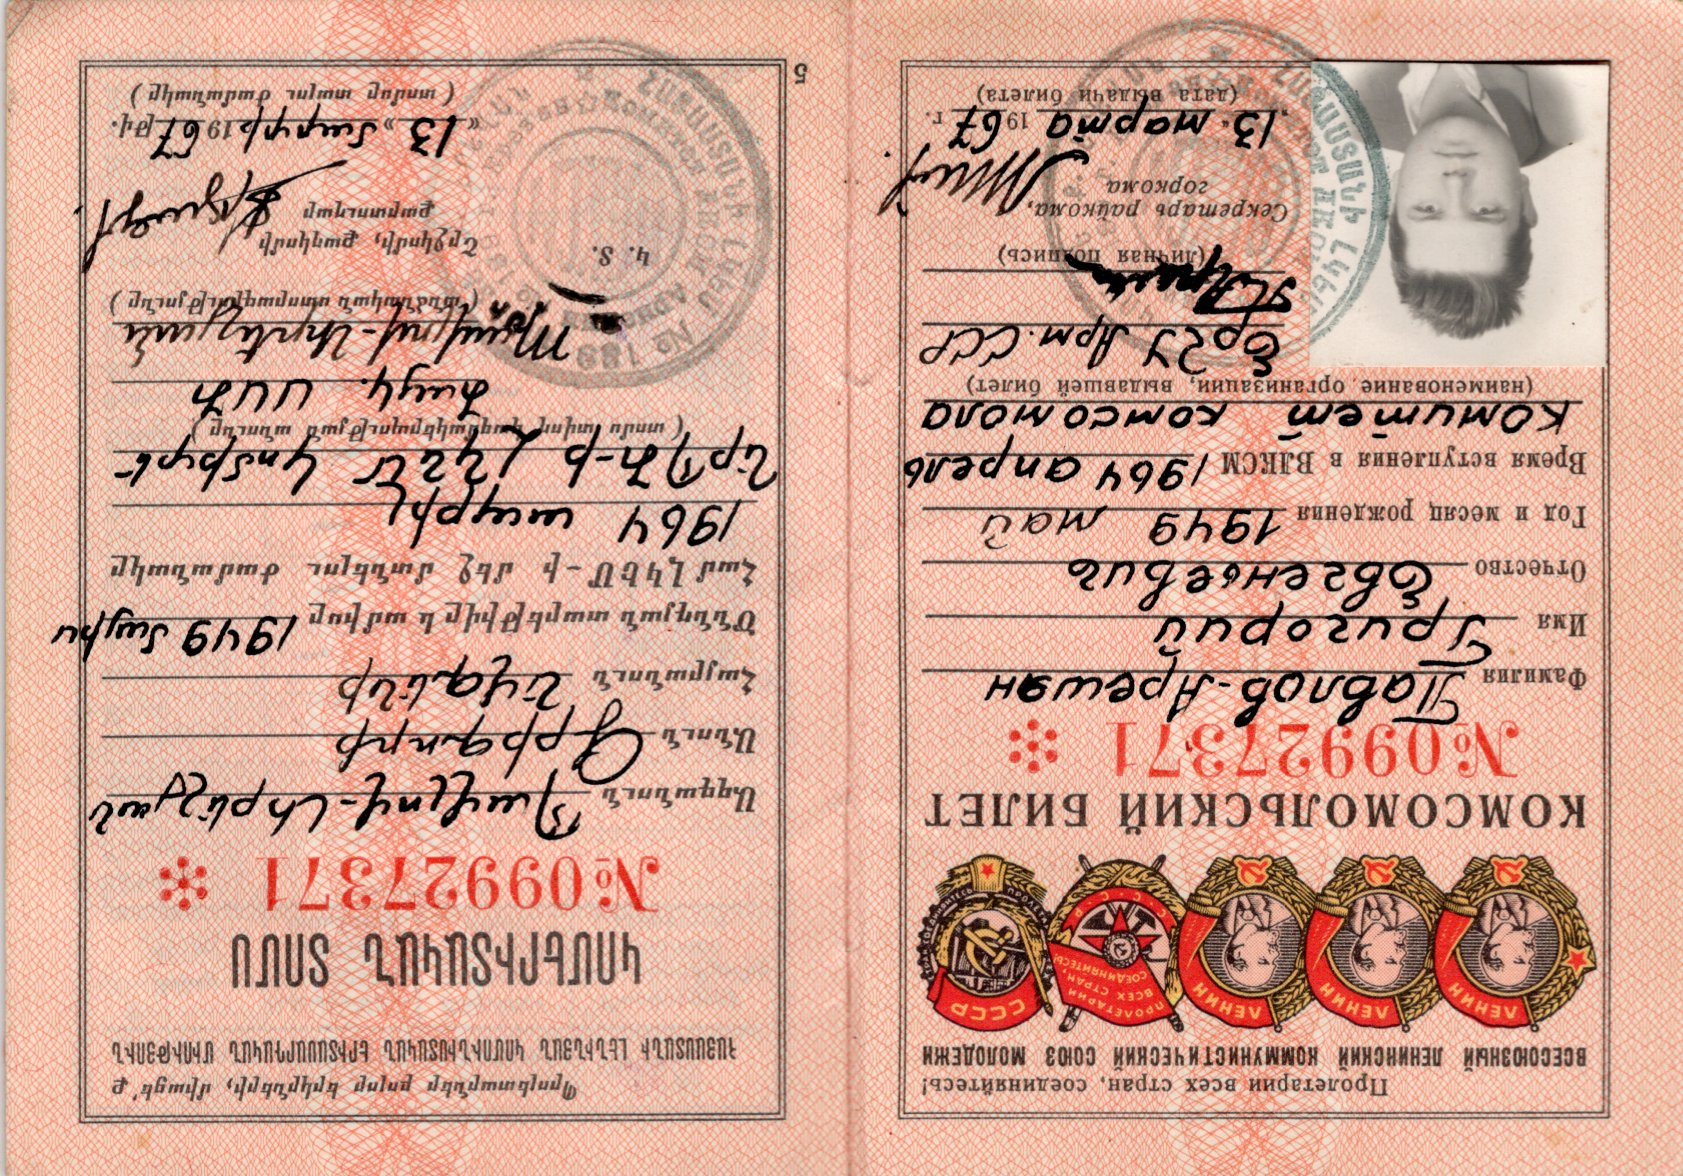 Пролетарии всех стран, соединяйтесь!
ВСЕСОЮЗНЫЙ ЛЕНИНСКИЙ КОММУНИСТИЧЕСКИЙ СОЮЗ МОЛОДЕЖИ
ЛЕНИН
ЛЕНИН
ЛЕНИН
ПРОЛЕТАРИИ
ВСЕХ СТРАН,
СОЕДИНЯЙТЕСЬ!
СССР
СССР
КОМСОМОЛЬСКИЙ БИЛЕТ
№09927371
Фамилия Павлов-Арешян
Имя Григорий
Отчество Евгеньевич
Год и месяц рождения 1949 май
Время вступления в ВЛКСМ 1964 апрель
комитет комсомола
(наименование организации, выдавшей билет)
ЕрГУ Арм.ССР
(личная подпись)
Секретарь райкома,
горкома
„13“ марта 1967 г.
(дата выдачи билета)
Պրոլետարներ բոլոր երկրների, միացե՛ք
ՀԱՄԱՄԻՈՒԹԵՆԱԿԱՆ ԼԵՆԻՆՅԱՆ ԿՈՄՈՒՆԻՍՏԱԿԱՆ ԵՐԻՏԱՍԱՐԴԱԿԱՆ ՄԻՈՒԹՅՈՒՆ
ԿՈՄԵՐԻՏՄԻՈՒԹՅԱՆ ՏՈՄՍ
№09927371
Ազգանուն Պավլով-Արեշյան
Անուն Գրիգորի
Հայրանուն Եվգենիի
Ծննդյան տարեթիվը և ամիսը 1949 մայիս
Համ ԼԿԵՄ-ի մեջ մտնելու ժամանակը
1964 ապրիլ
(տոմս տվող կազմակերպության անունը)
Հայկ. ՍՍՀ
(անձնական ստորագրությունը)
Կ. Տ.
Շրջկոմի, քաղկոմի
քարտուղար
«13» մարտի 1967 թվ.
(տոմսը տալու ժամանակը)
5